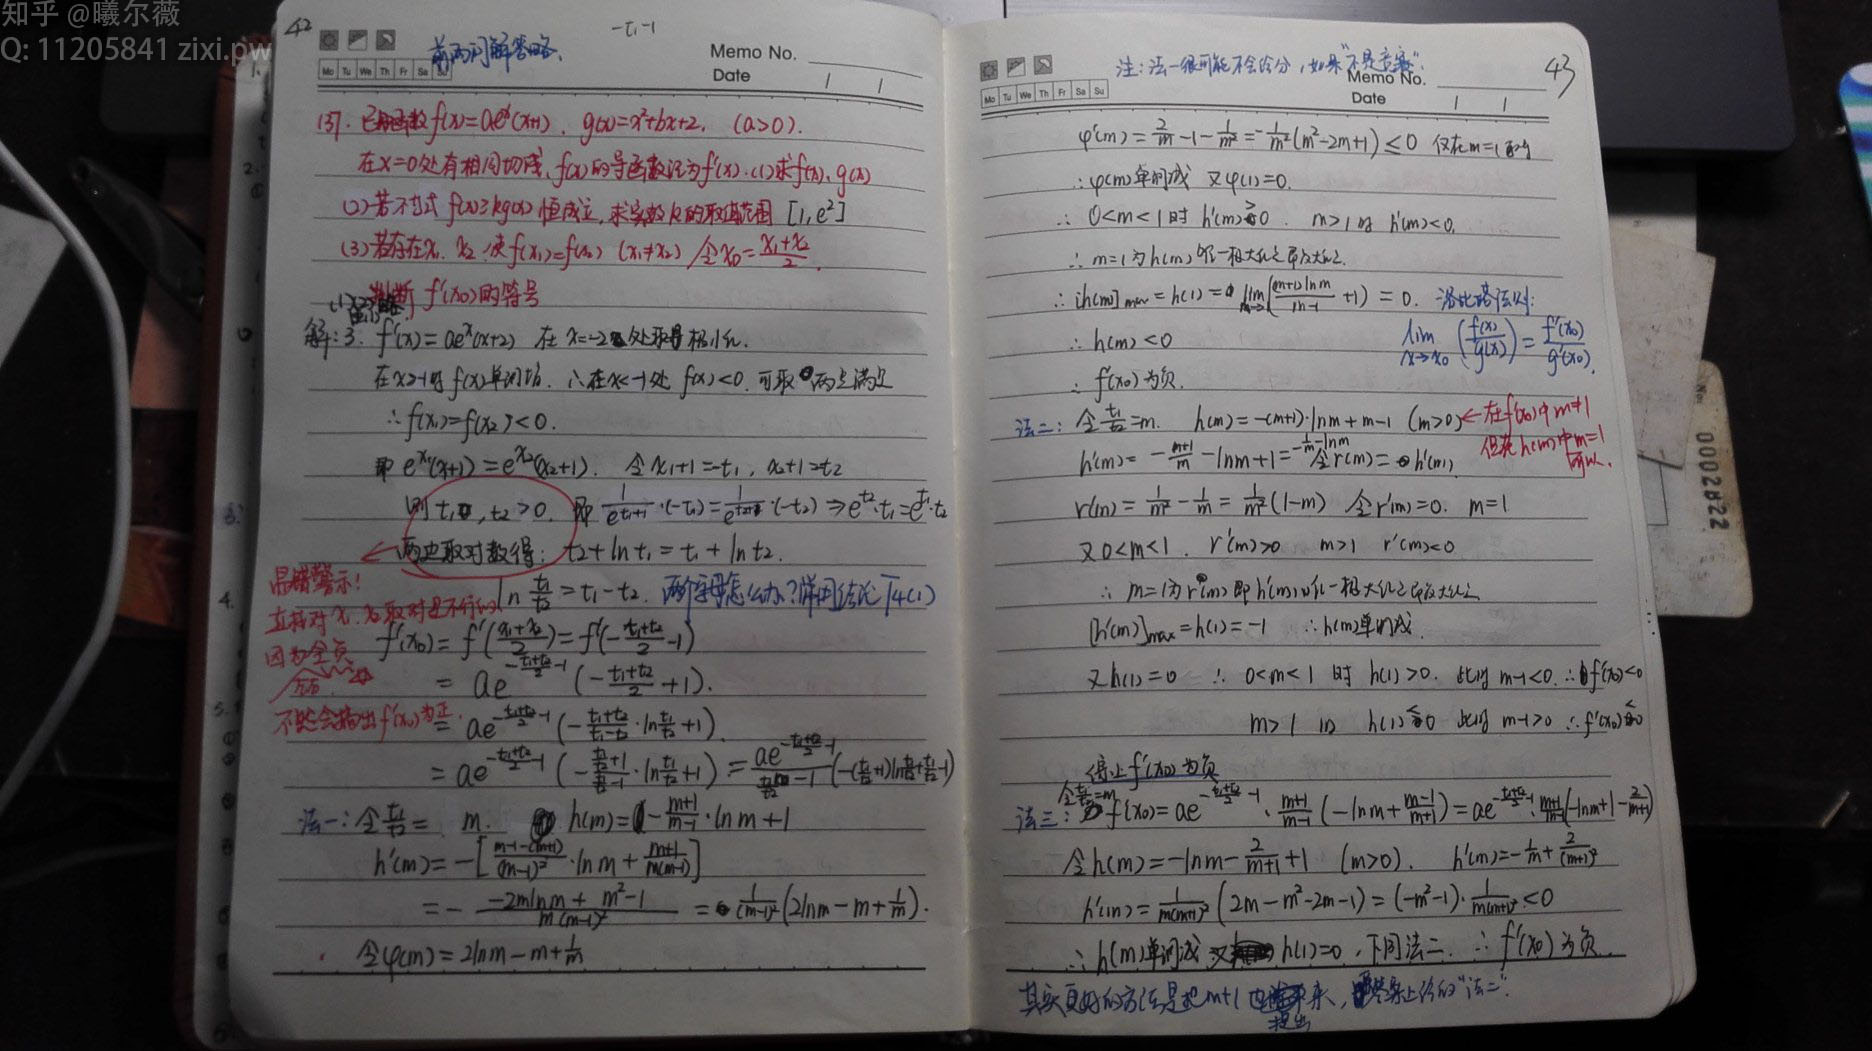 知乎 @曦尔薇
Q: 11205841 zixi.pw
42
-t₁-1
前两问解答略.
Memo No.
Mo Tu We Th Fr Sa Su
Date / /
137. 已知函数f(x)=ae^x(x+1). g(x)=x²+bx+2. (a>0).
在x=0处有相同切线, f(x)的导函数记为f'(x). (1)求f(x), g(x)
(2)若不等式 f(x)≥kg(x)恒成立, 求实数k的取值范围 [1,e²]
(3)若存在x₁, x₂ 使f(x₁)=f(x₂) (x₁≠x₂) 令x₀=(x₁+x₂)/2.
判断 f'(x₀)的符号
解: 3. f'(x)=ae^x(x+2) 在x=-2处取得极小值.
在x>-1时f(x)单调增, ∴在x<-1处 f(x)<0. 可取两点满足
∴f(x₁)=f(x₂)<0.
即 e^{x₁}(x₁+1)=e^{x₂}(x₂+1). 令x₁+1=-t₁, x₂+1=-t₂
则t₁, t₂>0. 即 1/e^{t₁+1}·(-t₁)=1/e^{t₂+1}·(-t₂) ⇒ e^{t₂}·t₁=e^{t₁}·t₂
两边取对数得: t₂+lnt₁=t₁+lnt₂.
易错警示!
直接对x₁, x₂取对是不行的
因为全负
不然会搞出f'(x₀)为正.
ln t₁/t₂=t₁-t₂. 两个字母怎么办?详用结论74(1)
f'(x₀)=f'((x₁+x₂)/2)=f'(-(t₁+t₂)/2-1)
=ae^{-(t₁+t₂)/2-1}(-(t₁+t₂)/2+1).
=ae^{-(t₁+t₂)/2-1}(-(t₁+t₂)/(t₁-t₂)·ln t₁/t₂+1).
法一: 令t₁/t₂=m. h(m)=-(m+1)/(m-1)·lnm+1
h'(m)=-[(m-1-(m+1))/(m-1)²·lnm+(m+1)/(m(m-1))]
=-(-2mlnm+m²-1)/(m(m-1)²)=1/(m-1)²(2lnm-m+1/m).
令φ(m)=2lnm-m+1/m
注: 法一很可能不会给分, 如果"不是竞赛".
43
Memo No.
Mo Tu We Th Fr Sa Su
Date / /
φ'(m)=2/m-1-1/m²=-1/m²(m²-2m+1)≤0 仅在m=1时
∴φ(m)单调减 又φ(1)=0.
∴ 0<m<1时 h'(m)>0. m>1时 h'(m)<0.
∴ m=1为h(m)唯一极大值之即最大值之.
∴[h(m)]max=h(1)=lim(-(m+1)lnm/(m-1)+1)=0. 洛比塔法则:
lim x→x₀ (f(x)/g(x))=f'(x₀)/g'(x₀).
∴ h(m)<0
∴ f'(x₀)为负.
法二: 令t₁/t₂=m. h(m)=-(m+1)·lnm+m-1 (m>0) ←在f'(x₀)中m≠1
但在h(m)中m=1可以.
h'(m)=-(m+1)/m-lnm+1=-1/m-lnm 令r(m)=h'(m).
r'(m)=1/m²-1/m=1/m²(1-m) 令r'(m)=0. m=1
又0<m<1. r'(m)>0 m>1 r'(m)<0
∴ m=1为r(m)即h'(m)唯一极大值之即最大值之
[h'(m)]max=h'(1)=-1 ∴h(m)单调减.
又h(1)=0 ∴ 0<m<1 时 h(1)>0. 此时 m-1<0. ∴f'(x₀)<0
m>1 时 h(1)<0 此时 m-1>0 ∴f'(x₀)<0
综上f'(x₀)为负
令t₁/t₂=m
法三: f'(x₀)=ae^{-(t₁+t₂)/2-1}·(m+1)/(m-1)(-lnm+(m-1)/(m+1))=ae^{-(t₁+t₂)/2-1}·(m+1)/(m-1)(-lnm+1-2/(m+1))
令h(m)=-lnm-2/(m+1)+1 (m>0). h'(m)=-1/m+2/(m+1)²
h'(m)=1/(m(m+1)²)(2m-m²-2m-1)=(-m²-1)·1/(m(m+1)²)<0
∴h(m)单调减 又 h(1)=0, 下同法二. ∴f'(x₀)为负.
其实更好的方法是把m+1提出来,